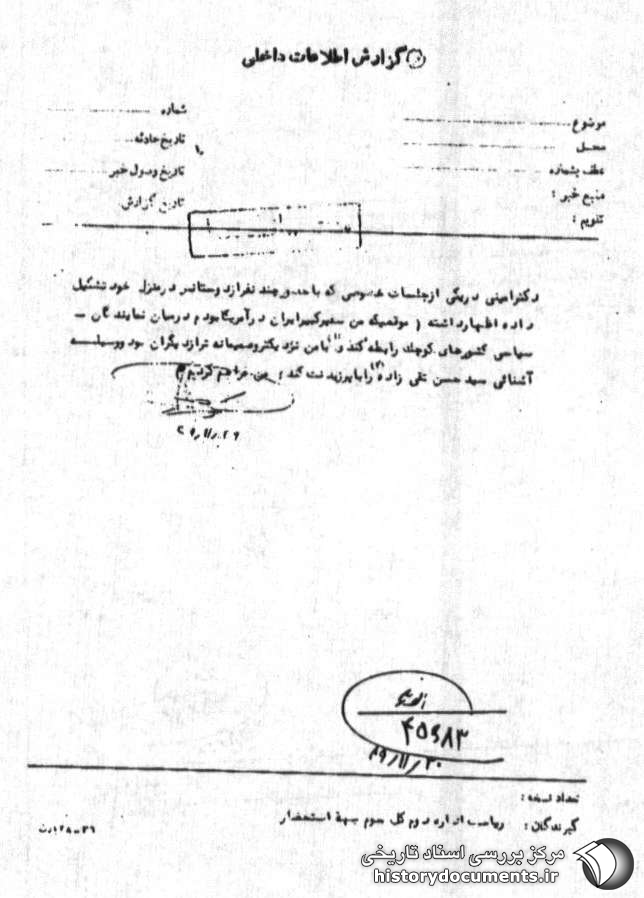 گزارش اطلاعات داخلی
موضوع
شماره
محل
تاریخ حادثه
عطف بشماره
تاریخ وصول خبر
منبع خبر :
تاریخ گزارش
تقویم :
دکتر امینی در یکی از جلسات خصوصی که با حضور چند نفر از دوستانش در منزل خود تشکیل
داده اظهار داشته ( موقعیکه من سفیر کبیر ایران در آمریکا بودم در میان نمایندگان
سیاسی کشورهای کوچک رابطه با من نزدیکتر و صمیمانه تر از دیگران بود و وسیله
آشنائی سید حسن تقی زاده را با پرزیدنت من فراهم کردم
۴۵۶۸۳
۴۹/۱۱/۳۰
تعداد نسخه :
گیرندگان : ریاست اداره دوم کل سوم جهة استحضار
مرکز بررسی اسناد تاریخی
historydocuments.ir